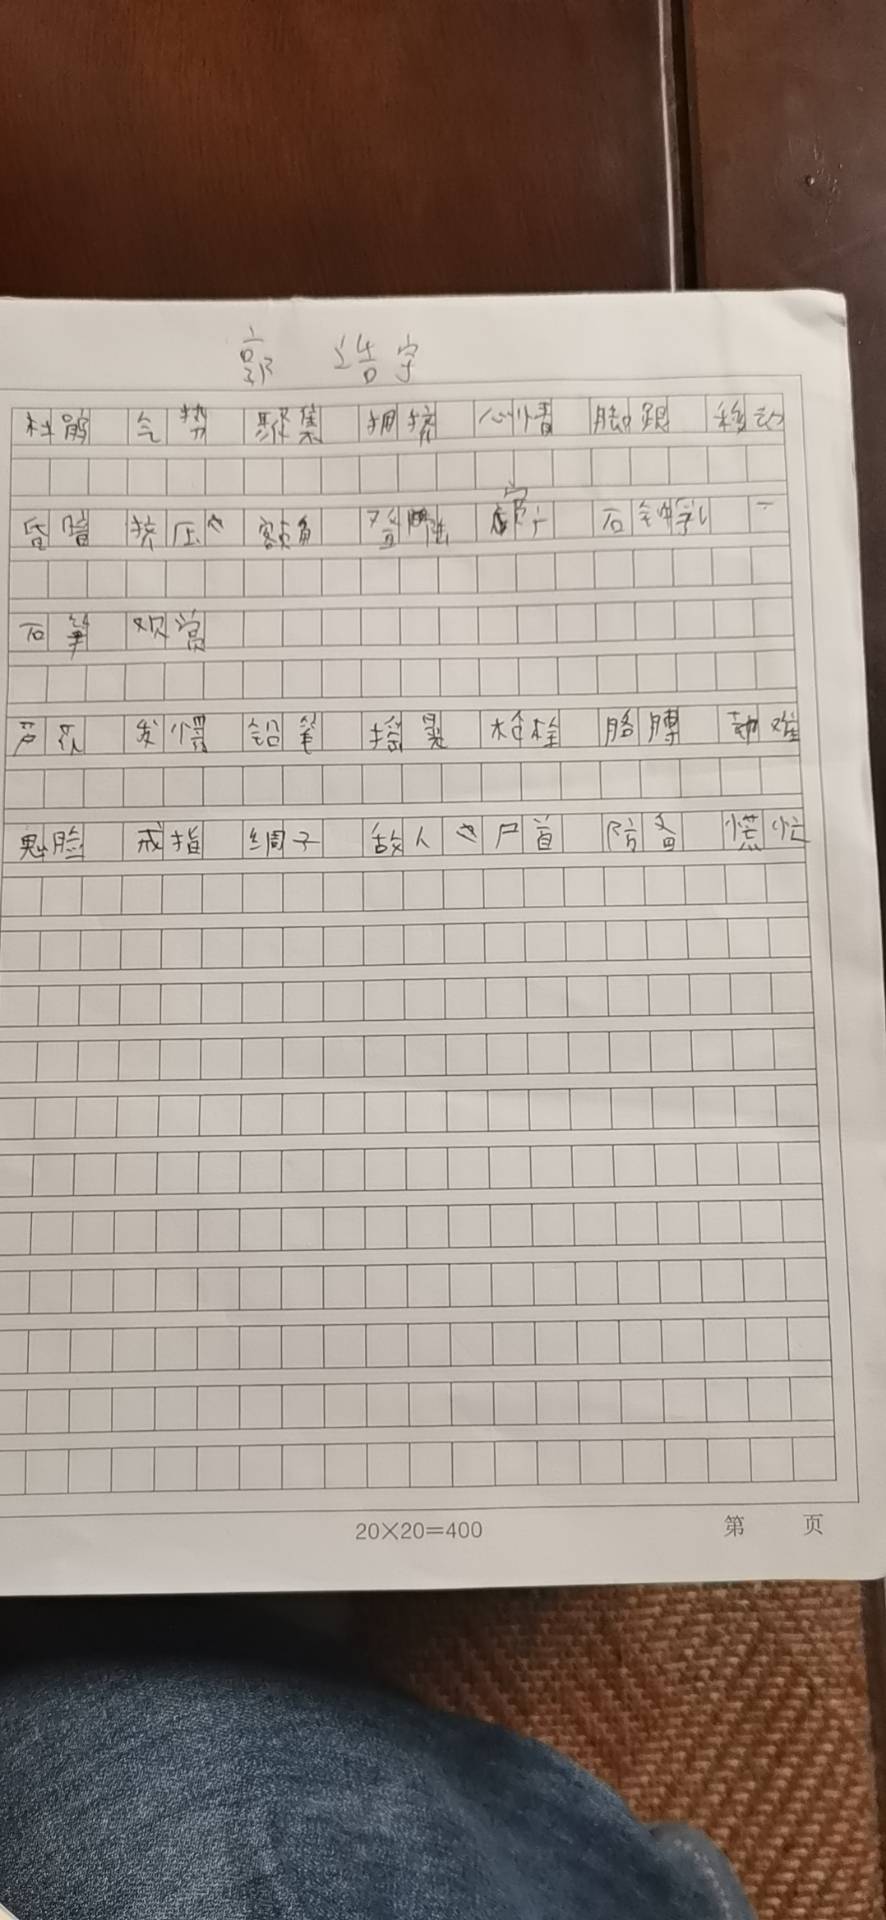 郭 浩宇
气势 聚集 拥挤 心情 脚跟 移动
昏暗 挤压 额角 石钟乳
石笋 观赏
芦 发愣 铅笔 摇晃 胳膊 劫难
鬼脸 戒指 绸子 敌人 尸首 防备 慌忙
20×20=400 第 页